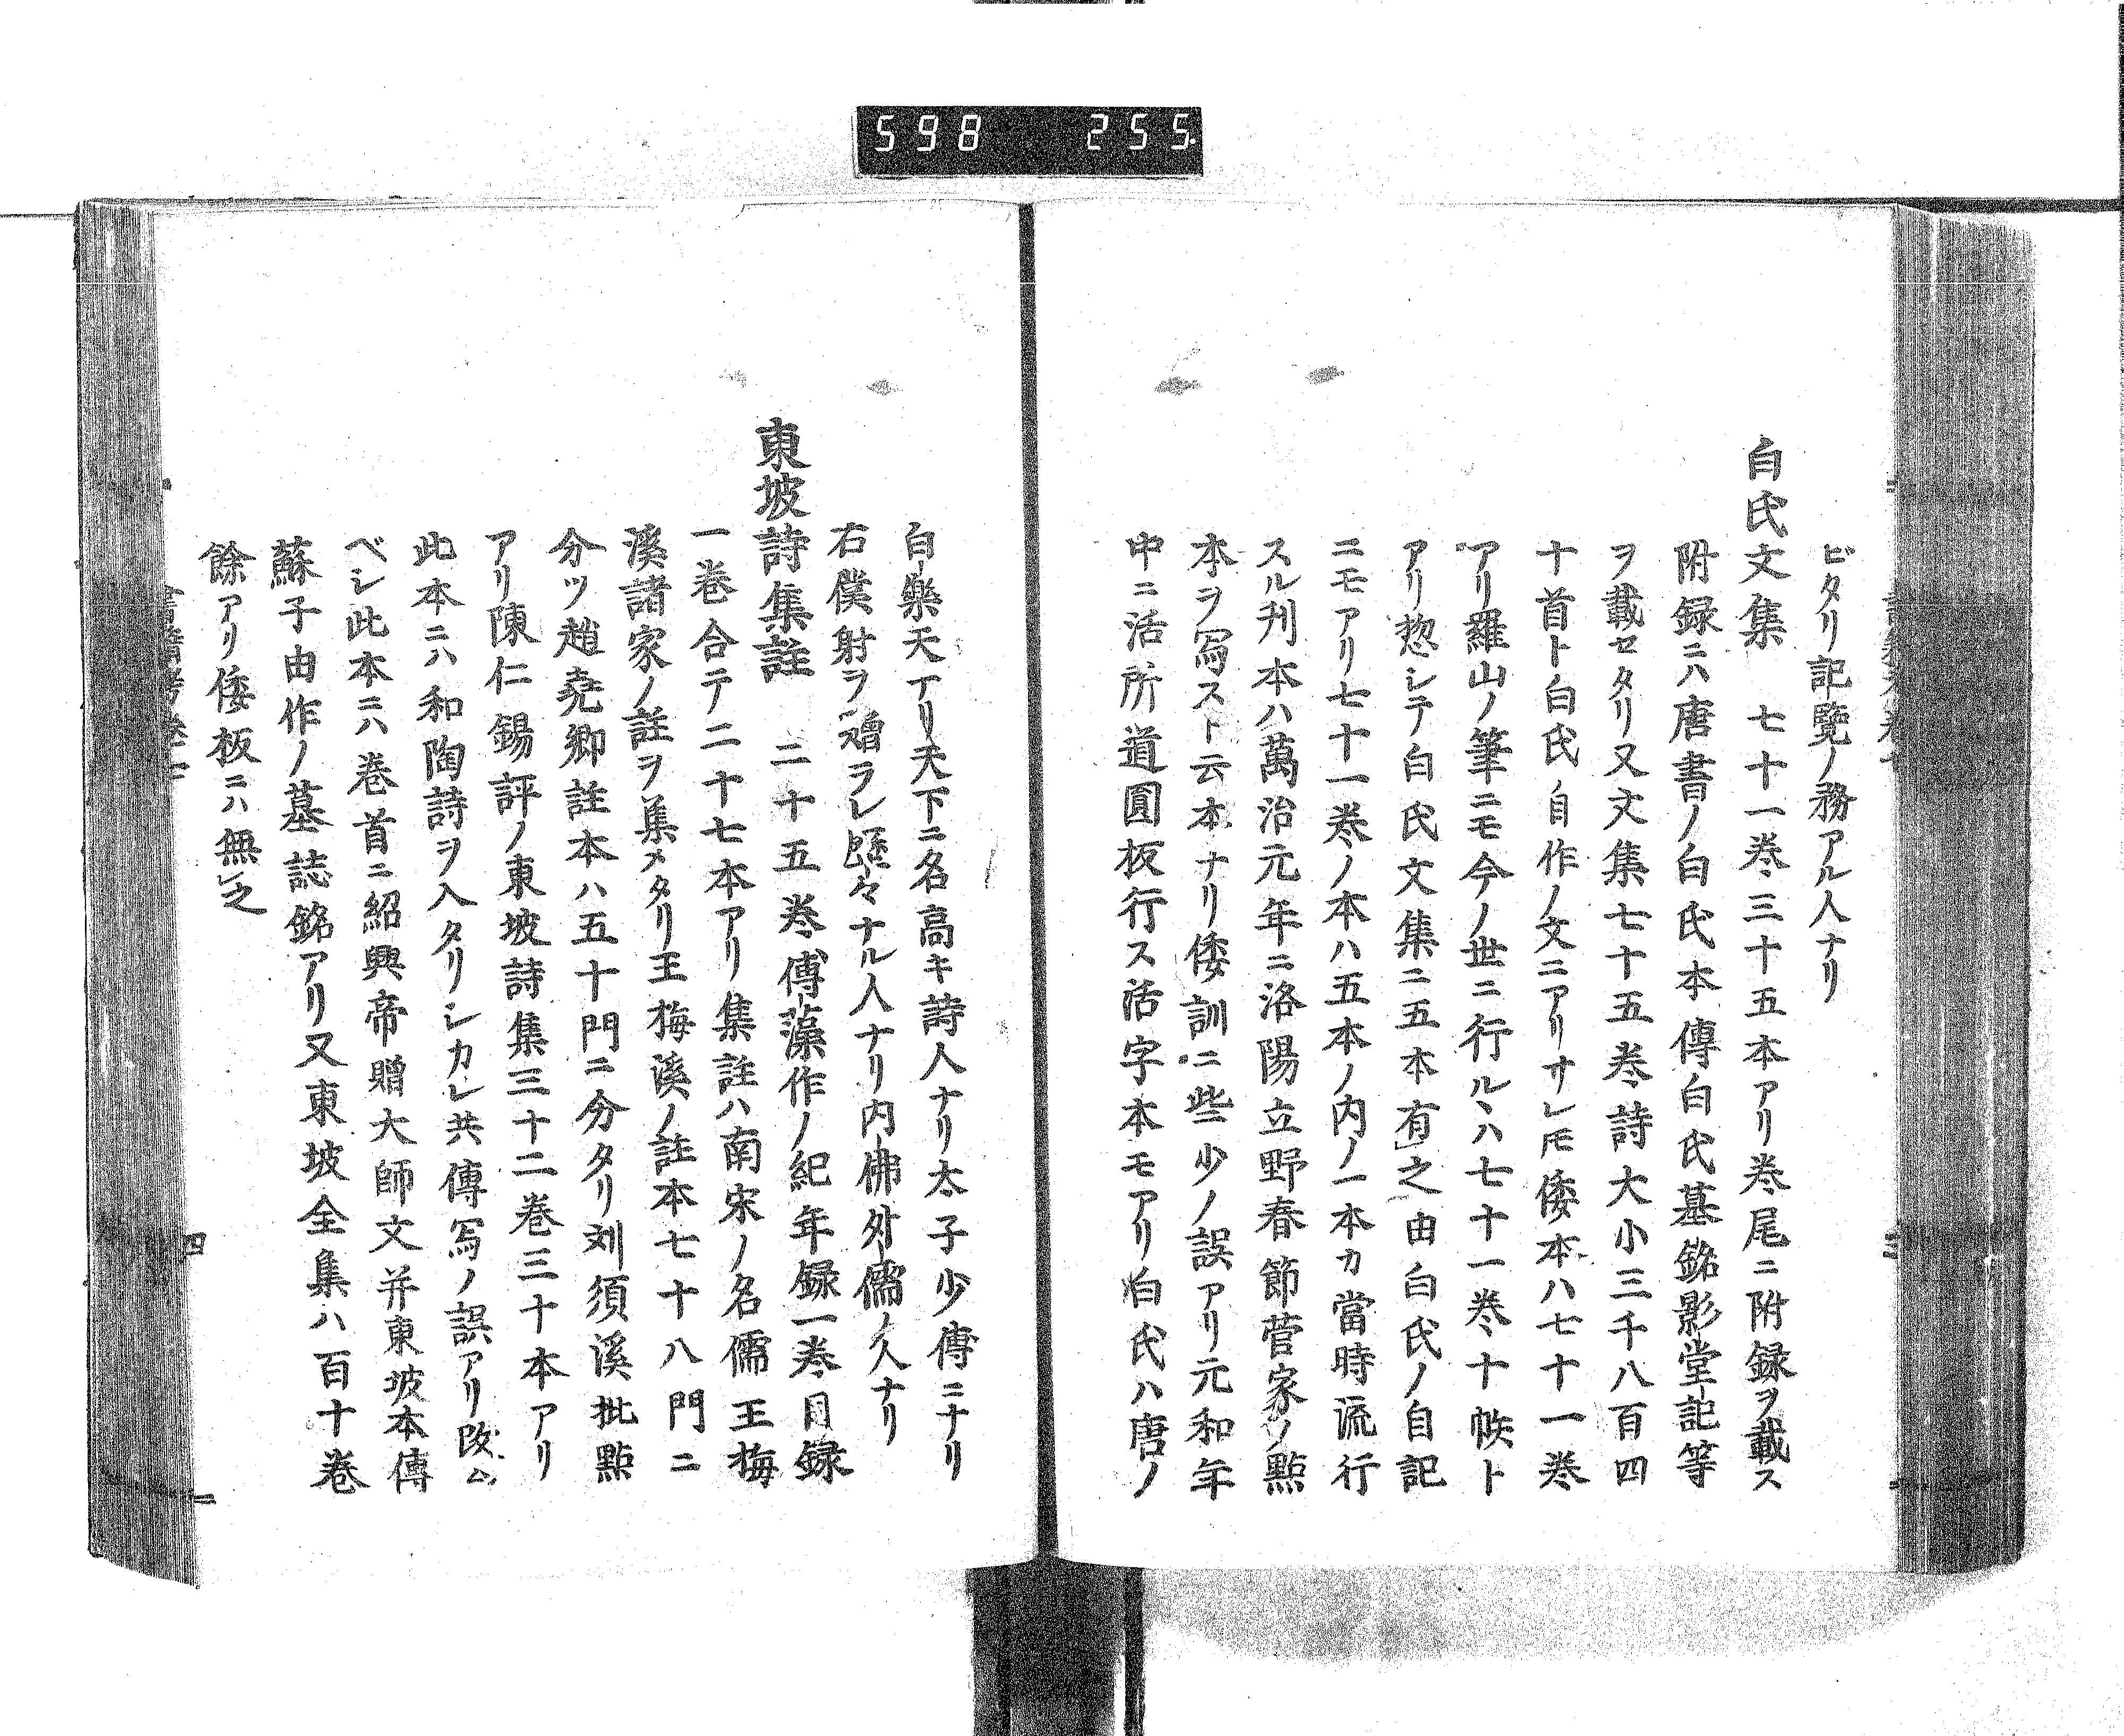 598 255.
ビタリ記覽ノ務アル人ナリ
白氏文集 七十一巻三十五本アリ巻尾ニ附録ヲ載ス
附録ニハ唐書ノ白氏本傳白氏墓銘影堂記等
ヲ載セタリ又文集七十五巻詩大小三千八百四
十首ト白氏ノ自作ノ文ニアリサレ𪜈倭本ハ七十一巻
アリ羅山ノ筆ニモ今ノ世ニ行ルヽハ七十一巻十帙ト
アリ惣シテ白氏文集ニ五本有レ之由白氏ノ自記
ニモアリ七十一巻ノ本ハ五本ノ内ノ一本カ當時流行
スル刋本ハ萬治元年ニ洛陽立野春節菅家ノ點
本ヲ写スト云本ナリ倭訓ニ些少ノ誤アリ元和年
中ニ活所道圓板行ス活字本モアリ白氏ハ唐ノ
白樂天ナリ天下ニ名高キ詩人ナリ太子少傳ニナリ
右僕射ヲ贈ラレ歴々ナル人ナリ内佛外儒ノ人ナリ
東坡詩集註 二十五巻傅藻作ノ紀年録一巻目録
一巻合テ二十七本アリ集註ハ南宋ノ名儒王梅
溪諸家ノ註ヲ集メタリ王梅溪ノ註本七十八門ニ
分ツ趙堯卿註本ハ五十門ニ分タリ刘須溪批點
アリ陳仁錫評ノ東坡詩集三十二巻三十本アリ
此本ニハ和陶詩ヲ入タリシカレ共傳写ノ誤アリ改ム
ベシ此本ニハ巻首ニ紹興帝贈大師文并東坡本傳
蘇子由作ノ墓誌銘アリ又東坡全集ハ百十巻
餘アリ倭板ニハ無レ之
四